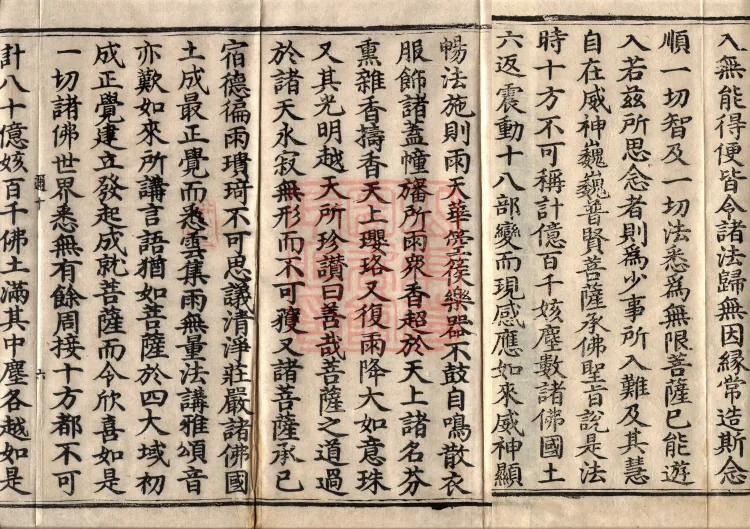 入無能得便皆令諸法歸無因緣常造斯念
順一切智及一切法悉為無限菩薩已能遊
入若茲所思念者則為少事所入難及其慧
自在威神巍巍普賢菩薩承佛聖旨說是法
時十方不可稱計億百千姟塵數諸佛國土
六返震動十八部變而現感應如來威神顯
暢法施則雨天華箜篌樂器不鼓自鳴散衣
服飾諸蓋幢旛所雨眾香超於天上諸名芬
熏雜香擣香天上瓔珞又復雨降大如意珠
又其光明越天所珍讚曰善哉菩薩之道過
於諸天永寂無形而不可獲又諸菩薩承已
宿德徧雨瓌琦不可思議清淨莊嚴諸佛國
土成最正覺而悉雲集雨無量法講雅頌音
亦歎如來所講言語猶如菩薩於四大域初
成正覺建立發起成就菩薩而令欣喜如是
一切諸佛世界悉無有餘周接十方都不可
邇十 六
計八十億姟百千佛土滿其中塵各越如是